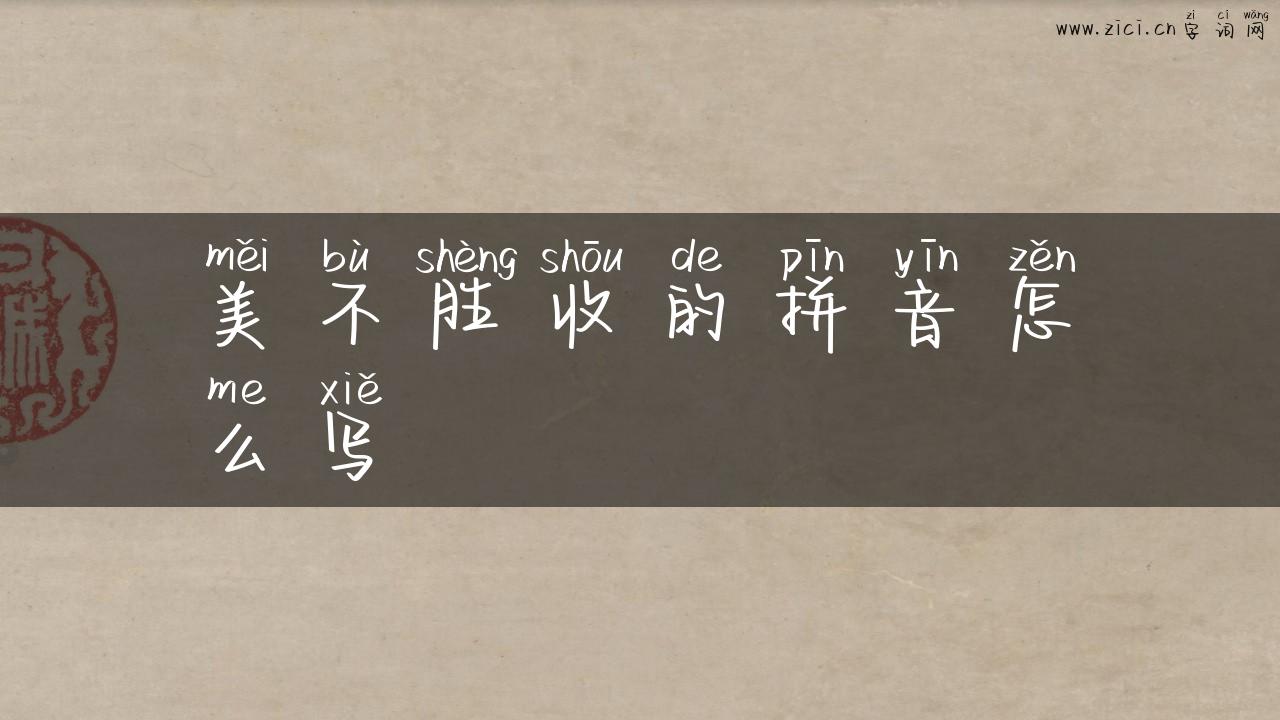 zì cí wǎng
www.zici.cn 字词网
měi bù shèng shōu de pīn yīn zěn
美不胜收的拼音怎
me xiě
么写